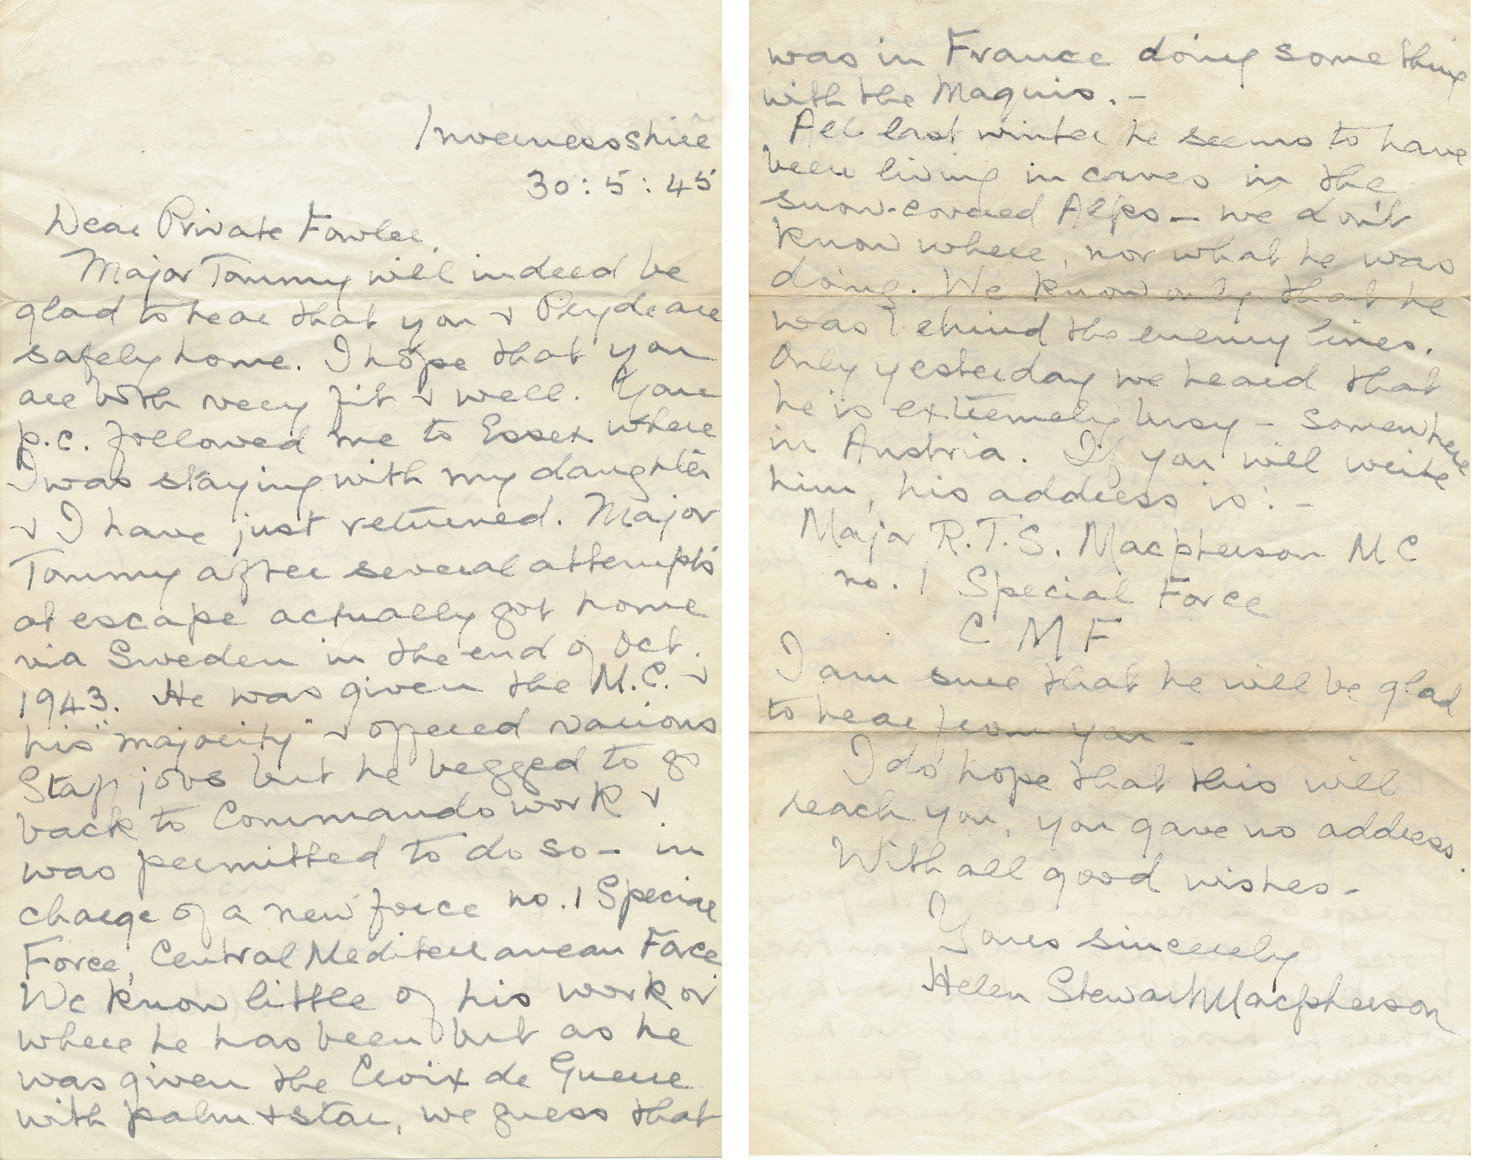 Invernessshire
30:5:45
Dear Private Fowler,
Major Tommy will indeed be
glad to hear that you & Pryde are
safely home. I hope that you
are both very fit & well. Your
p.c. followed me to Essex where
I was staying with my daughter
& I have just returned. Major
Tommy after several attempts
at escape actually got home
via Sweden in the end of Oct.
1943. He was given the M.C. &
his "majority" & offered various
Staff jobs but he begged to go
back to Commando work &
was permitted to do so – in
charge of a new force no. 1 Special
Force, Central Mediterranean Force
We know little of his work or
where he has been but as he
was given the Croix de Guerre
with palm & star, we guess that
was in France doing something
with the Maquis. –
All last winter he seems to have
been living in caves in the
snow-covered Alps – we don't
know where, nor what he was
doing. We know only that he
was behind the enemy lines.
Only yesterday we heard that
he is extremely busy – somewhere
in Austria. If you will write
him, his address is: –
Major R.T.S. Macpherson MC
no. 1 Special Force
C M F
I am sure that he will be glad
to hear from you –
I do hope that this will
reach you, you gave no address.
With all good wishes –
Yours sincerely
Helen Stewart Macpherson